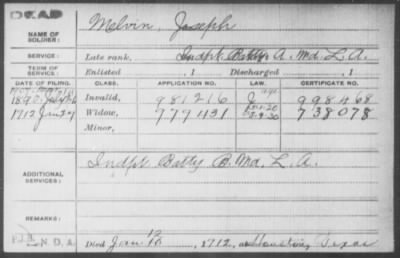 DEAD
NAME OF SOLDIER: Melvin, Joseph
SERVICE: Late rank, Indpt. Batty. A. Md. L. A.
TERM OF SERVICE: Enlisted , 1 Discharged , 1
DATE OF FILING. CLASS. APPLICATION NO. LAW. CERTIFICATE NO.
1890 July Invalid, 981216 J 998468
1912 Jan 27 Widow, 779431 738078
Minor,
ADDITIONAL SERVICES: Indpt Batty B. Md. L. A.
REMARKS:
N. D. A.
Died Jan. 1912, at Houston, Texas